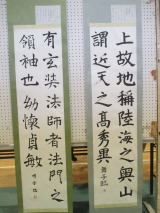 上故地稱陸海之奥山
謂近天之高秀異
有玄奘法師者法門之
領袖也幼懷貞敏